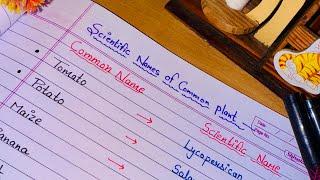 Scientific Names of Common plant
Date
Page No.
Common Name
Scientific Name
Tomato
Lycopersican
Potato
Maize